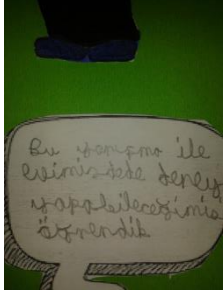 Bu yarışma ile
evimizdede deney
yapabileceğimizi
öğrendik